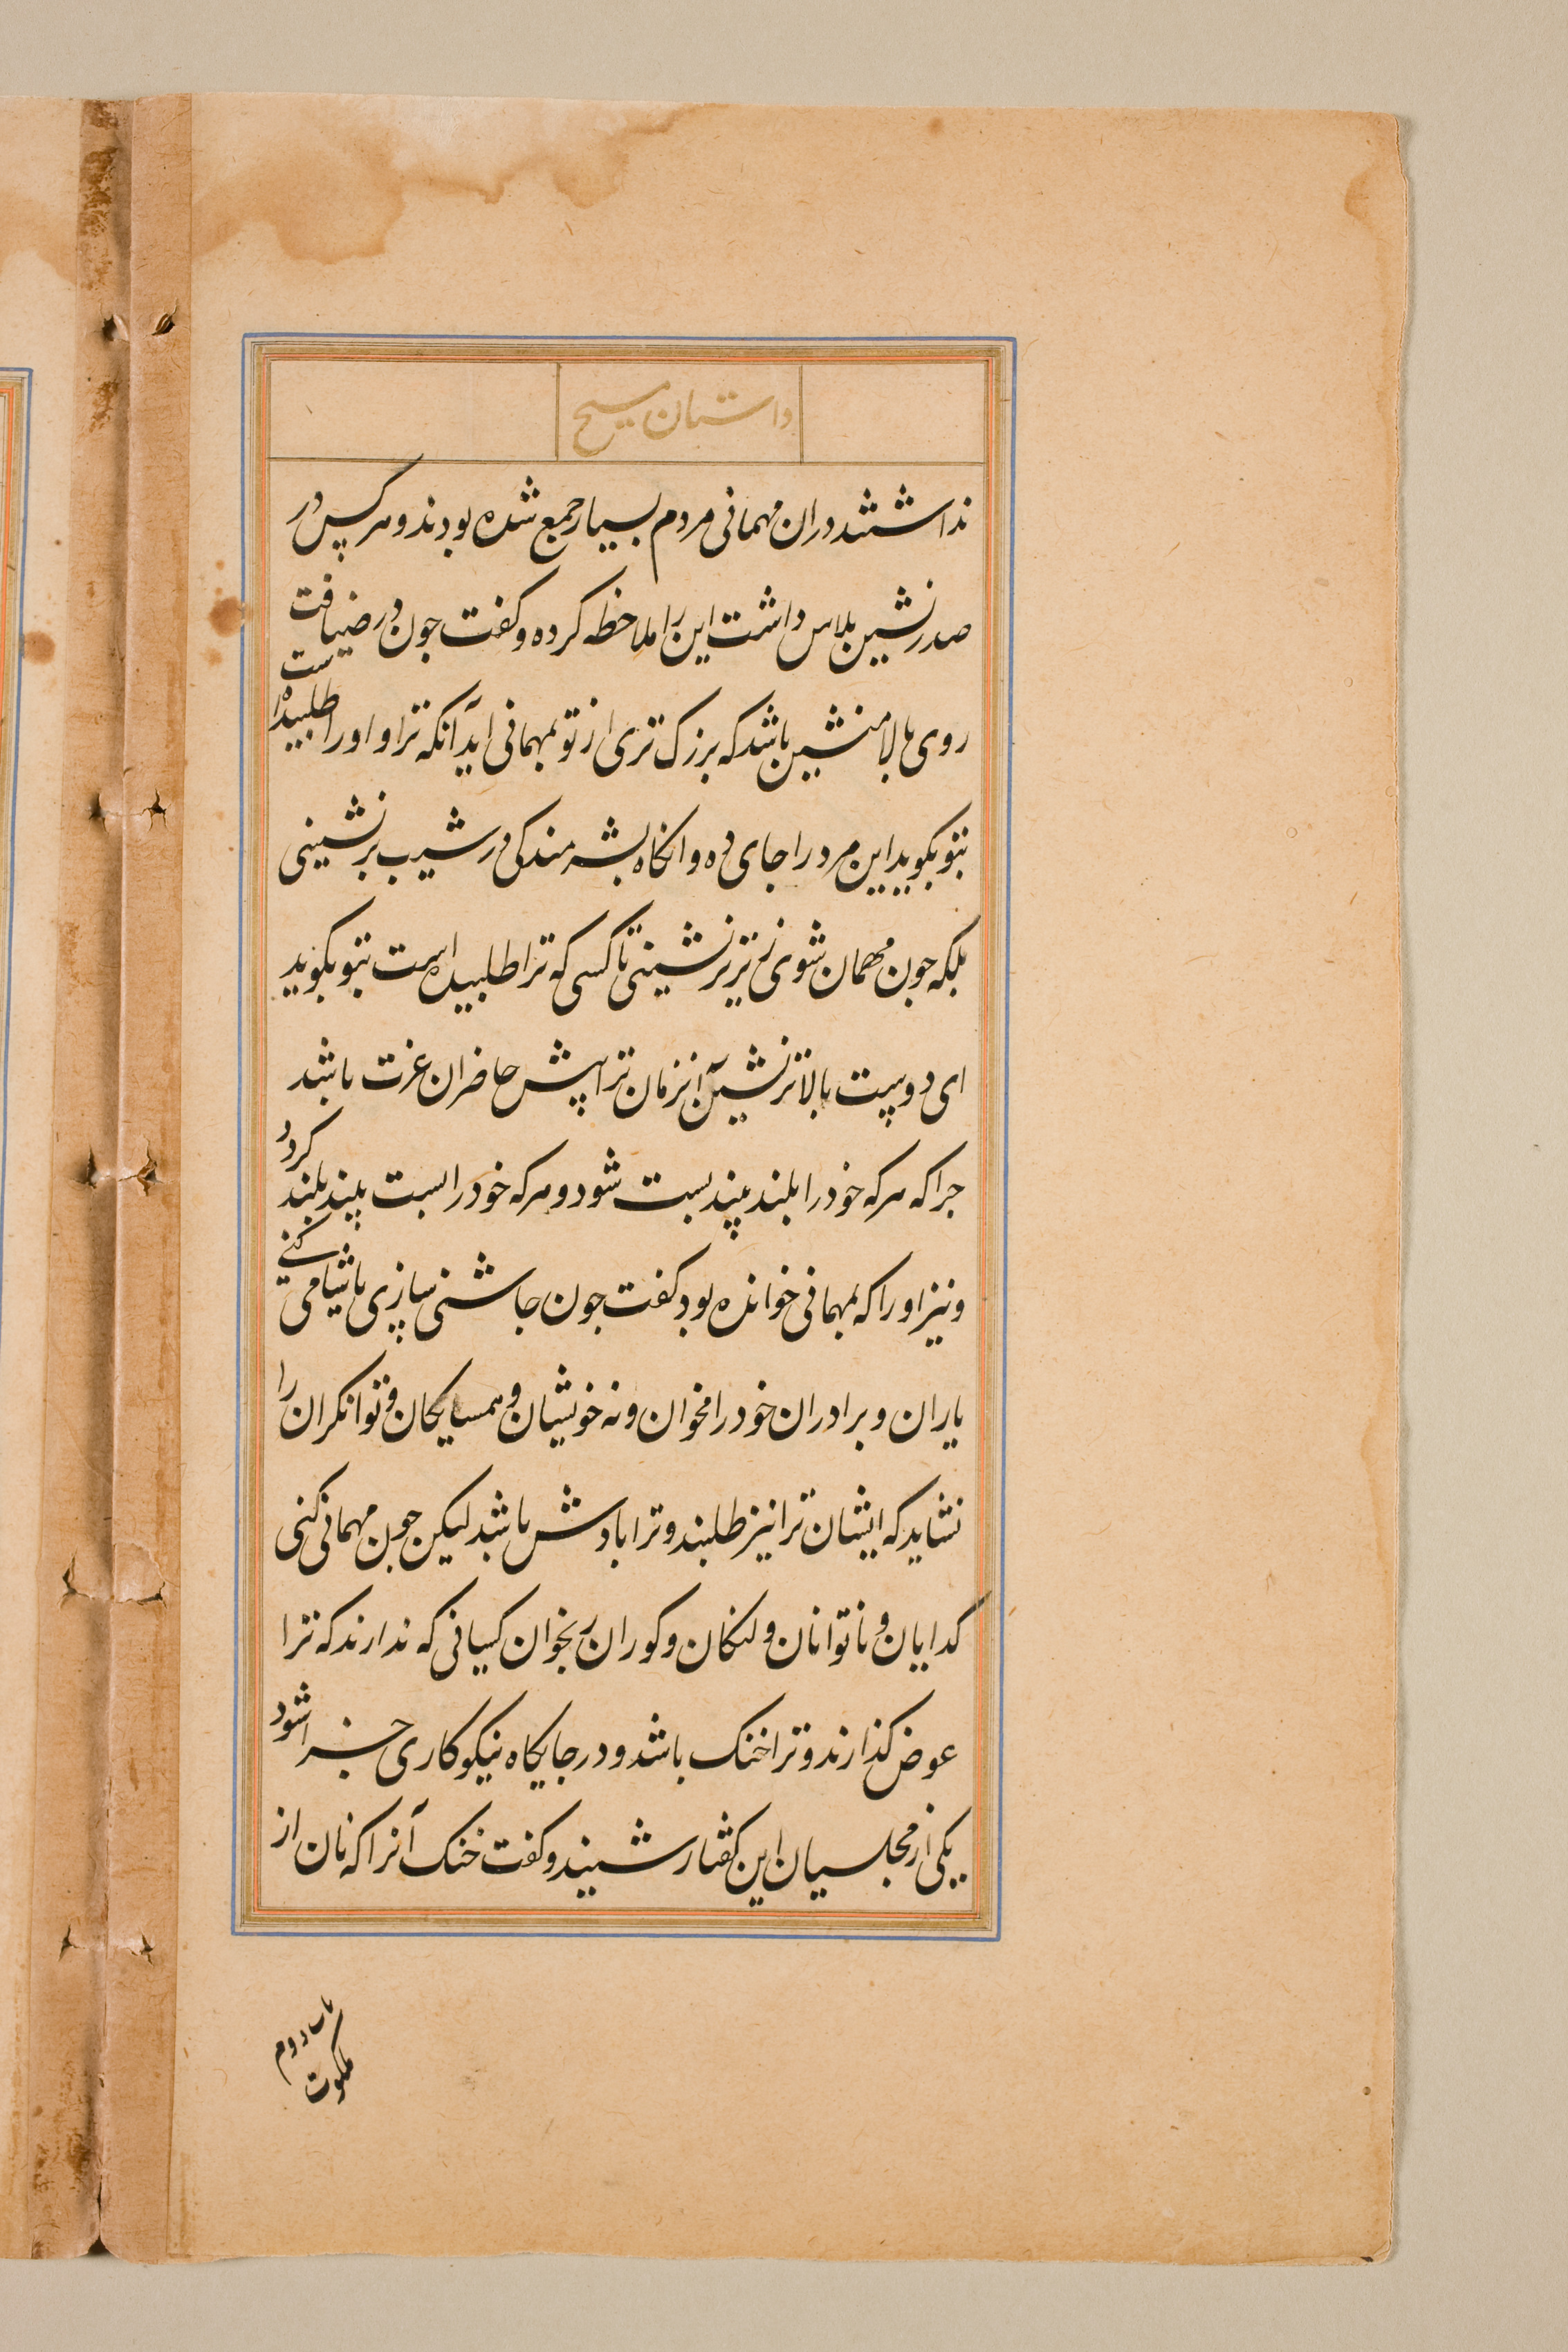 داستان مسیح
نداشتند دران مهمانی مردم بسیار جمع شده بودند و هر کس در
صدر نشین بلاس داشت این را ملاحظه کرده و کفت جون در ضیافت
روی بالا منشین باشد که بزرک تری از تو بمهمانی اید آنکه ترا و او را طلبیده است
بتو بکوید این مرد را جای ده و انکاه بشرمندکی در شیب تر نشینی
بلکه جون مهمان شوی زیر تر نشینی تا کسی که ترا طلبیده است بتو بکوید
ای دوست بالاتر نشین آنزمان ترا پیش حاضران عزت باشد
جرا که هر که خود را بلند بیند بست شود و هر که خود را بست بیند بلند کردد
و نیز او را که بمهمانی خوانده بود کفت جون جاشنی سازی یا شیامی کنی
یاران و برادران خود را مخوان و نه خویشان و همسایکان و توانکران را
نشاید که ایشان ترا نیز طلبند و ترا باداش باشد لیکن جون مهمانی کنی
کدایان و ناتوانان و لنکان و کوران بخوان کسانی که ندارند که ترا
عوض کذارند و ترا خنک باشد و در جایکاه نیکوکاری جزا شود
یکی از مجلسیان این کفتار شنید و کفت خنک آنرا که نان از
باب دوم
ملکوت